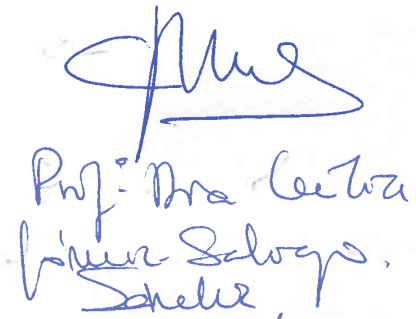 Prof. Dra Cecilia
Gómez-Salvago.
Sánchez